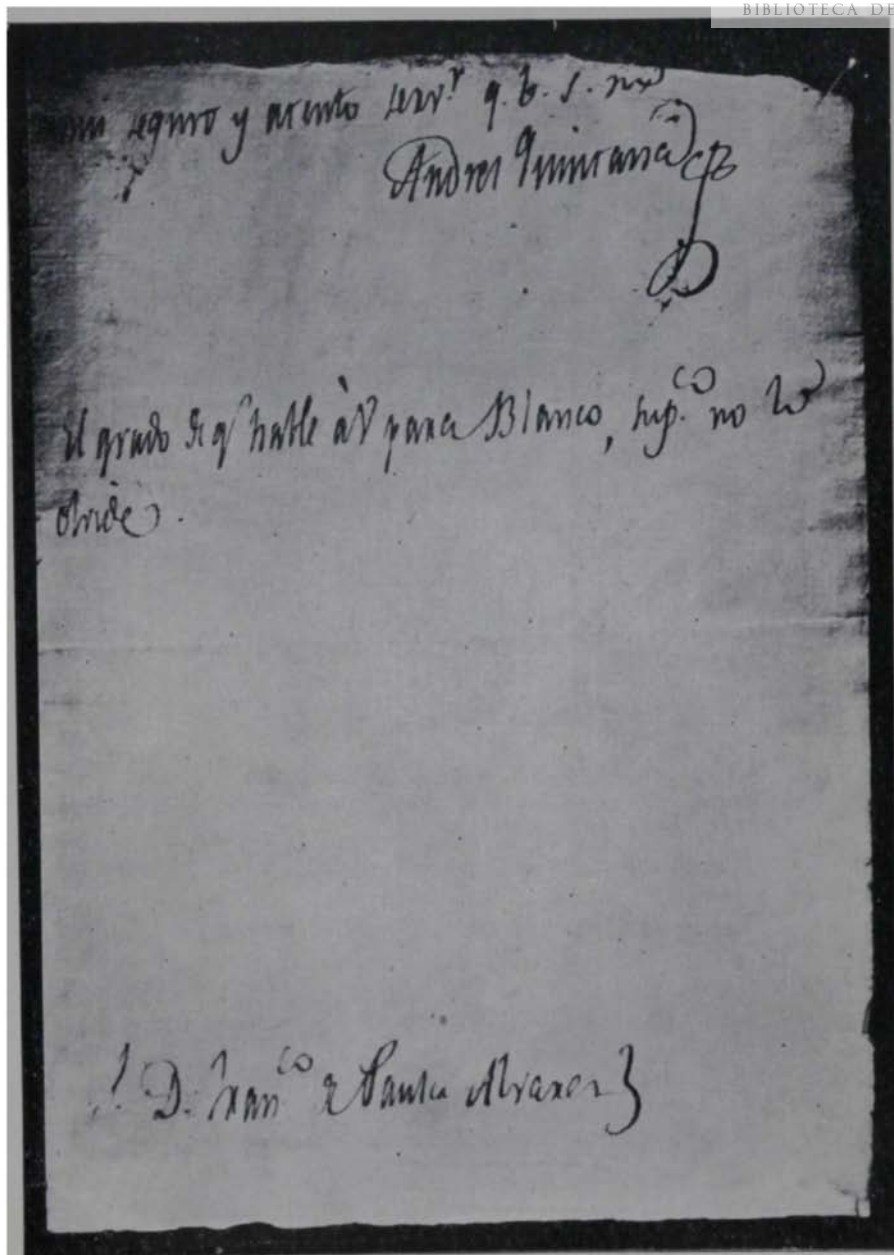 BIBLIOTECA DE
seguro y atento serv.r q. b. s. m.
Andres Quintana
El grado de q.e hablè à V para Blanco, sup.co no lo
olvide.
S. D. Fran.co de Paula Alvarez